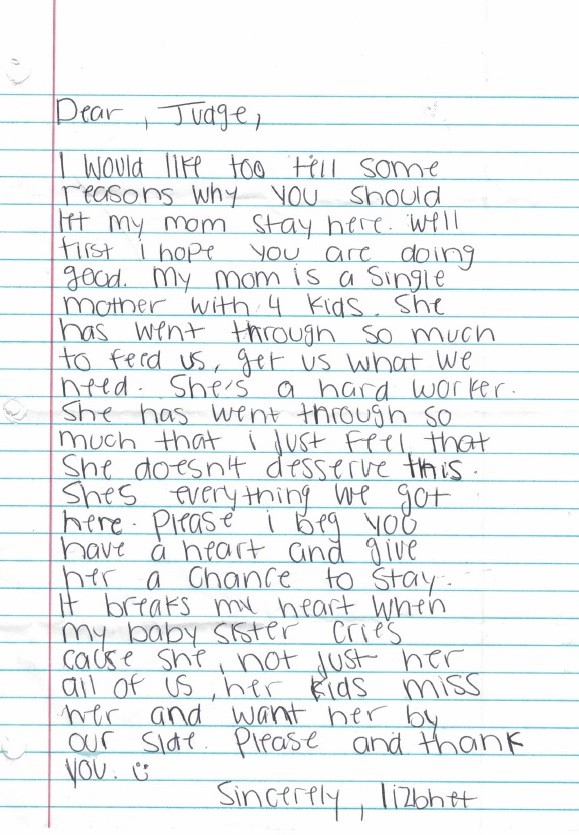 Dear , Judge,
I would like too tell some
reasons why you should
let my mom stay here. Well
first i hope you are doing
good. My mom is a Single
mother with 4 kids. She
has went through so much
to feed us, get us what we
need. She's a hard worker.
She has went through so
much that i just feel that
She doesn't desserve this.
Shes everything we got
here. Please i beg you
have a heart and give
her a Chance to Stay.
It breaks my heart when
my baby sister cries
cause she, not just her
all of us, her kids miss
her and want her by
our side. Please and thank
you. ☺
Sincerely, lizbhet